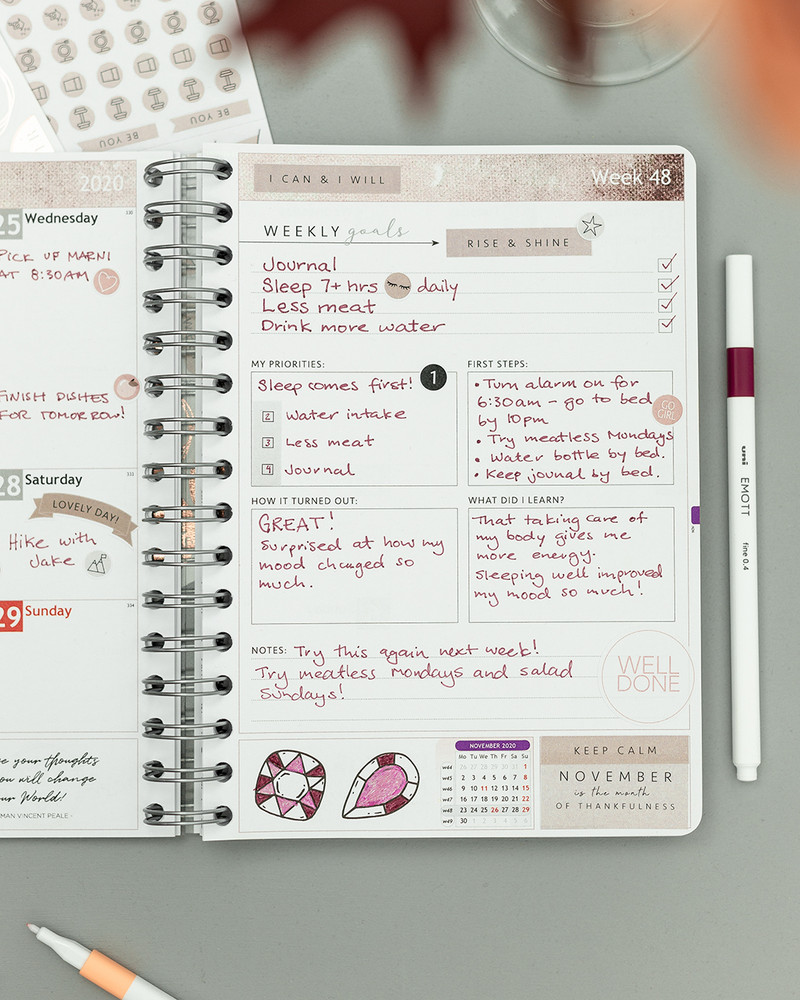 BE YOU
BE YOU
2020
25 Wednesday
330
PICK UP MARNI
AT 8:30AM
FINISH DISHES
FOR TOMORROW!
28 Saturday
333
LOVELY DAY!
Hike with
Jake
29 Sunday
334
your thoughts
you will change
your World!
VINCENT PEALE -
I CAN & I WILL
Week 48
WEEKLY goals
RISE & SHINE
Journal
Sleep 7+ hrs daily
Less meat
Drink more water
MY PRIORITIES:
Sleep comes first! 1
2 Water intake
3 Less meat
4 Journal
FIRST STEPS:
• Turn alarm on for
6:30am – go to bed
by 10pm
• Try meatless Mondays
• Water bottle by bed.
• Keep jounal by bed.
GO
GIRL
HOW IT TURNED OUT:
GREAT!
Surprised at how my
mood changed so
much.
WHAT DID I LEARN?
That taking care of
my body gives me
more energy.
Sleeping well improved
my mood so much!
NOTES: Try this again next week!
Try meatless Mondays and salad
Sundays!
WELL
DONE
NOVEMBER 2020
Mo Tu We Th Fr Sa Su
W44 26 27 28 29 30 31 1
W45 2 3 4 5 6 7 8
W46 9 10 11 12 13 14 15
W47 16 17 18 19 20 21 22
W48 23 24 25 26 27 28 29
W49 30 1 2 3 4 5 6
KEEP CALM
NOVEMBER
is the month
OF THANKFULNESS
uni EMOTT fine 0.4